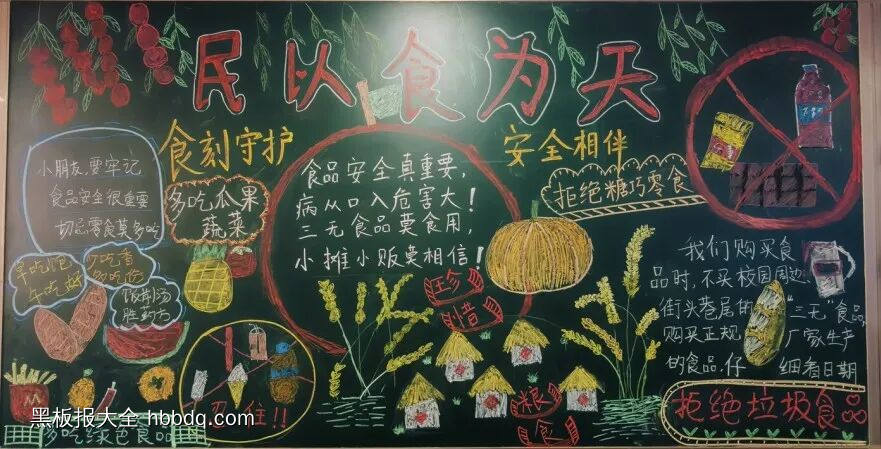 民以食为天
食刻守护
安全相伴
小朋友,要牢记
食品安全很重要
切忌零食莫多吃
多吃瓜果
蔬菜
食品安全真重要,
病从口入危害大!
三无食品莫食用,
小摊小贩莫相信!
拒绝糖巧零食
早吃饱
午吃好
饭前汤
胜药方
珍
惜
粮
食
我们购买食
品时,不买校园周边、
街头巷尾的“三无”食品,
购买正规厂家生产
的食品,仔细看日期
拒绝垃圾食品
多吃绿色食品
黑板报大全 hbbdq.com